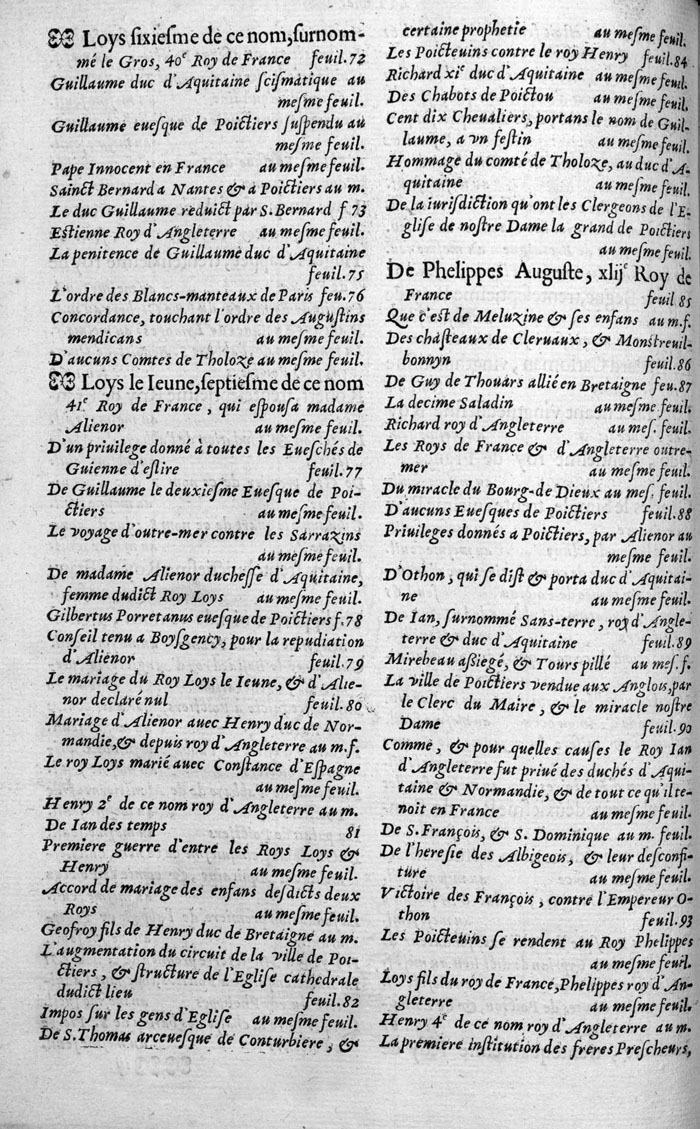 Loys sixiesme de ce nom, surnom-
mé le Gros, 40e Roy de France feuil.72
Guillaume duc d'Aquitaine scismatique au
mesme feuil.
Guillaume euesque de Poictiers suspendu au
mesme feuil.
Pape Innocent en France au mesme feuil.
Sainct Bernard a Nantes & à Poictiers au m.
Le duc Guillaume reduict par S. Bernard f 73
Estienne Roy d'Angleterre au mesme feuil.
La penitence de Guillaume duc d'Aquitaine
feuil.75
L'ordre des Blancs-manteaux de Paris feu.76
Concordance, touchant l'ordre des Augustins
mendicans au mesme feuil.
D'aucuns Comtes de Tholoze au mesme feuil.
Loys le Ieune, septiesme de ce nom
41e Roy de France, qui espousa madame
Alienor au mesme feuil.
D'un priuilege donné à toutes les Eueschés de
Guienne d'eslire feuil.77
De Guillaume le deuxiesme Euesque de Poi-
ctiers au mesme feuil.
Le voyage d'outre-mer contre les Sarrazins
au mesme feuil.
De madame Alienor duchesse d'Aquitaine,
femme dudict Roy Loys au mesme feuil.
Gilbertus Porretanus euesque de Poictiers f.78
Conseil tenu a Boysgency, pour la repudiation
d'Alienor feuil.79
Le mariage du Roy Loys le Ieune, & d'Alie-
nor declaré nul feuil.80
Mariage d'Alienor auec Henry duc de Nor-
mandie, & depuis roy d'Angleterre au m.f.
Le roy Loys marié auec Constance d'Espagne
au mesme feuil.
Henry 2e de ce nom roy d'Angleterre au m.
De Ian des temps 81
Premiere guerre d'entre les Roys Loys &
Henry au mesme feuil.
Accord de mariage des enfans desdicts deux
Roys au mesme feuil.
Geofroy fils de Henry duc de Bretaigne au m.
L'augmentation du circuit de la ville de Poi-
ctiers, & structure de l'Eglise cathedrale
dudict lieu feuil.82
Impos sur les gens d'Eglise au mesme feuil.
De S. Thomas arceuesque de Conturbiere, &
certaine prophetie au mesme feuil.
Les Poicteuins contre le roy Henry feuil.84
Richard xie duc d'Aquitaine au mesme feuil.
Des Chabots de Poictou au mesme feuil.
Cent dix Cheualiers, portans le nom de Guil-
laume, a vn festin au mesme feuil.
Hommage du comté de Tholoze, au duc d'A-
quitaine au mesme feuil.
De la iurisdiction qu'ont les Clergeons de l'E-
glise de nostre Dame la grand de Poictiers
au mesme feuil.
De Phelippes Auguste, xlije Roy de
France feuil 85
Que c'est de Meluzine & ses enfans au m.f.
Des chasteaux de Cleruaux, & Monstreuil-
bonnyn feuil.86
De Guy de Thouars allié en Bretaigne feu.87
La decime Saladin au mesme feuil.
Richard roy d'Angleterre au mes. feuil.
Les Roys de France & d'Angleterre outre-
mer au mesme feuil.
Du miracle du Bourg-de Dieux au mes. feuil.
D'aucuns Euesques de Poictiers feuil.88
Priuileges donnés a Poictiers, par Alienor au
mesme feuil.
D'Othon, qui se dist & porta duc d'Aquitai-
ne au mesme feuil.
De Ian, surnommé Sans-terre, roy d'Angle-
terre & duc d'Aquitaine feuil.89
Mirebeau assiegé, & Tours pillé au mes. f.
La ville de Poictiers vendue aux Anglois, par
le Clerc du Maire, & le miracle nostre
Dame feuil.90
Comme, & pour quelles causes le Roy Ian
d'Angleterre fut priué des duchés d'Aqui-
taine & Normandie, & de tout ce qu'il te-
noit en France au mesme feuil.
De S. François, & S. Dominique au m. feuil.
De l'heresie des Albigeois, & leur desconfi-
ture au mesme feuil.
Victoire des François, contre l'Empereur O-
thon feuil.93
Les Poicteuins se rendent au Roy Phelippes
au mesme feuil.
Loys fils du roy de France, Phelippes roy d'An-
gleterre au mesme feuil.
Henry 4e de ce nom roy d'Angleterre au m.
La premiere institution des freres Prescheurs,